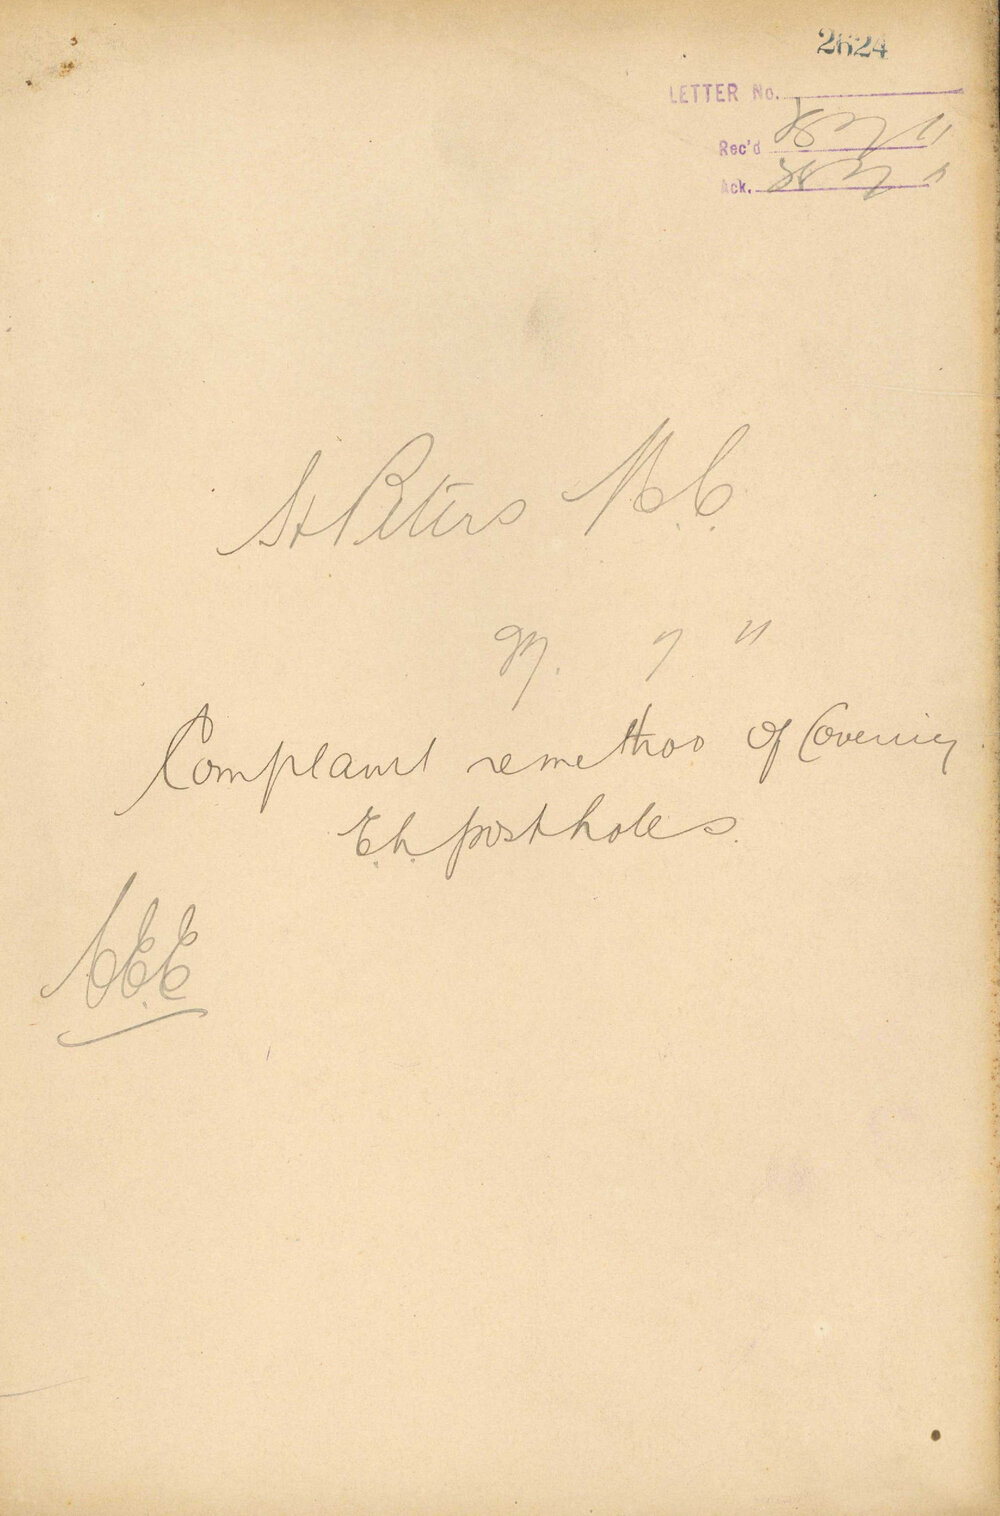 2624
LETTER No.
Rec'd 28 7 11
Ack. 28 7 11
St Peters M.C.
27. 7 11
Complaint re method of Covering
E.L. post holes.
C.E.E